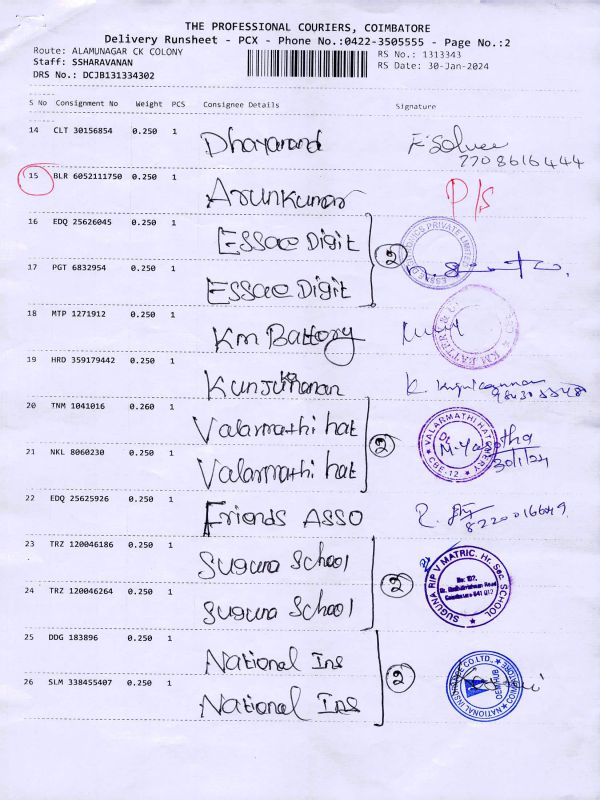 THE PROFESSIONAL COURIERS, COIMBATORE
Delivery Runsheet - PCX - Phone No.:0422-3505555 - Page No.:2
Route: ALAMUNAGAR CK COLONY RS No.: 1313343
Staff: SSHARAVANAN RS Date: 30-Jan-2024
DRS No.: DCJB131334302
S No Consignment No Weight PCS Consignee Details Signature
14 CLT 30156854 0.250 1 Dhayanand 7708616444
15 BLR 6052111750 0.250 1 Arunkumar P/S
16 EDQ 25626045 0.250 1 Essae Digit
17 PGT 6832954 0.250 1 Essae Digit 2
18 MTP 1271912 0.250 1 Km Battery
19 HRD 359179442 0.250 1 Kunjukanan
20 TNM 1041016 0.260 1 Valarmathi hat
21 NKL 8060230 0.250 1 Valarmathi hat 2 VALARMATHI HATCHERY CBE-12 30/1/24
22 EDQ 25625926 0.250 1 Friends ASSO 8220016649
23 TRZ 120046186 0.250 1 Suguna School
24 TRZ 120046264 0.250 1 Suguna School 2 SUGUNA RIP V MATRIC. Hr. Sec. SCHOOL
25 DDG 183896 0.250 1 National Ins
26 SLM 338455407 0.250 1 National Ins 2 NATIONAL INSURANCE CO LTD., COIMBATORE